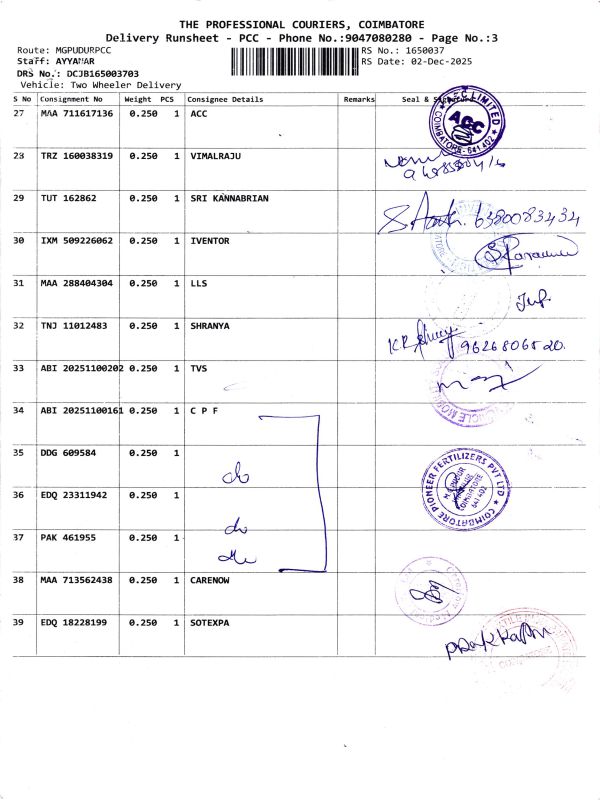 THE PROFESSIONAL COURIERS, COIMBATORE
Delivery Runsheet - PCC - Phone No.:9047080280 - Page No.:3
Route: MGPUDURPCC
RS No.: 1650037
Staff: AYYANAR
RS Date: 02-Dec-2025
DRS No.: DCJB165003703
Vehicle: Two Wheeler Delivery
S No Consignment No Weight PCS Consignee Details Remarks Seal & Signature
27 MAA 711617136 0.250 1 ACC
ACC LIMITED
ACC
COIMBATORE - 641 402
28 TRZ 160038319 0.250 1 VIMALRAJU
29 TUT 162862 0.250 1 SRI KANNABRIAN
6380083434
30 IXM 509226062 0.250 1 IVENTOR
31 MAA 288404304 0.250 1 LLS
32 TNJ 11012483 0.250 1 SHRANYA
9626806520.
33 ABI 20251100202 0.250 1 TVS
34 ABI 20251100161 0.250 1 C P F
35 DDG 609584 0.250 1
do
COIMBATORE PIONEER FERTILIZERS PVT LTD
COIMBATORE
641 402
36 EDQ 23311942 0.250 1
do
37 PAK 461955 0.250 1
38 MAA 713562438 0.250 1 CARENOW
39 EDQ 18228199 0.250 1 SOTEXPA